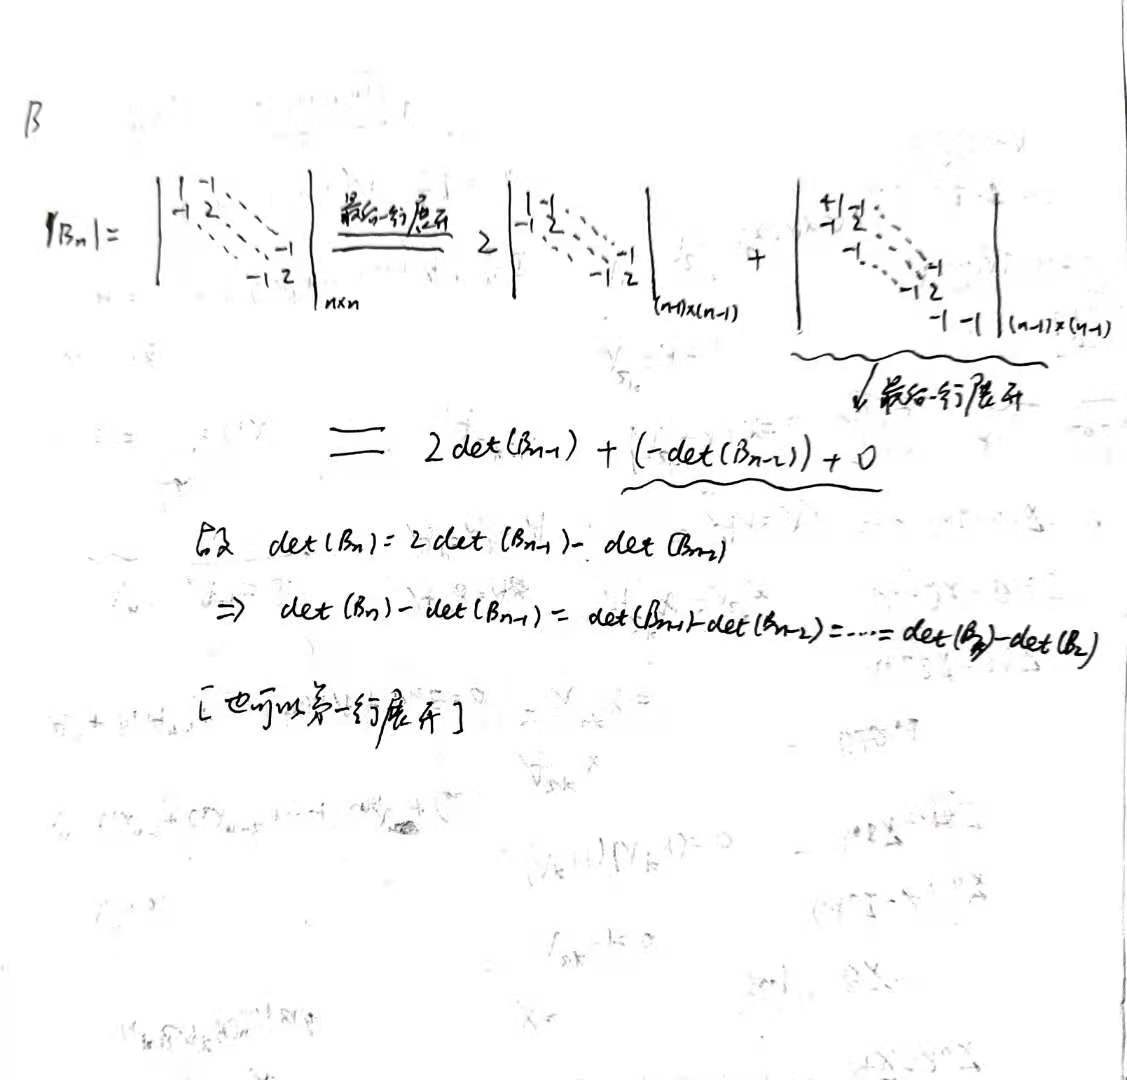 B
|Bₙ| = | 1 -1 -1 2 -1 -1 2 |ₙₓₙ 最后一行展开 2 | 1 -1 -1 2 -1 -1 2 |(n-1)×(n-1) + | +1 -1 -1 2 -1 -1 -1 2 -1 -1 |(n-1)×(n-1)
↓ 最后一行展开
= 2 det(Bₙ₋₁) + (-det(Bₙ₋₂)) + 0
故 det(Bₙ) = 2 det(Bₙ₋₁) - det(Bₙ₋₂)
⇒ det(Bₙ) - det(Bₙ₋₁) = det(Bₙ₋₁) - det(Bₙ₋₂) = ... = det(B₃) - det(B₂)
[也可以第一行展开]